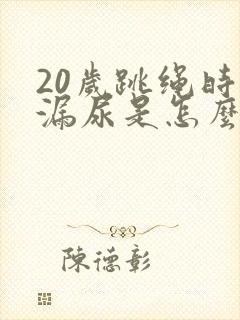 20歲跳绳時
漏尿是怎麼
陳德彰